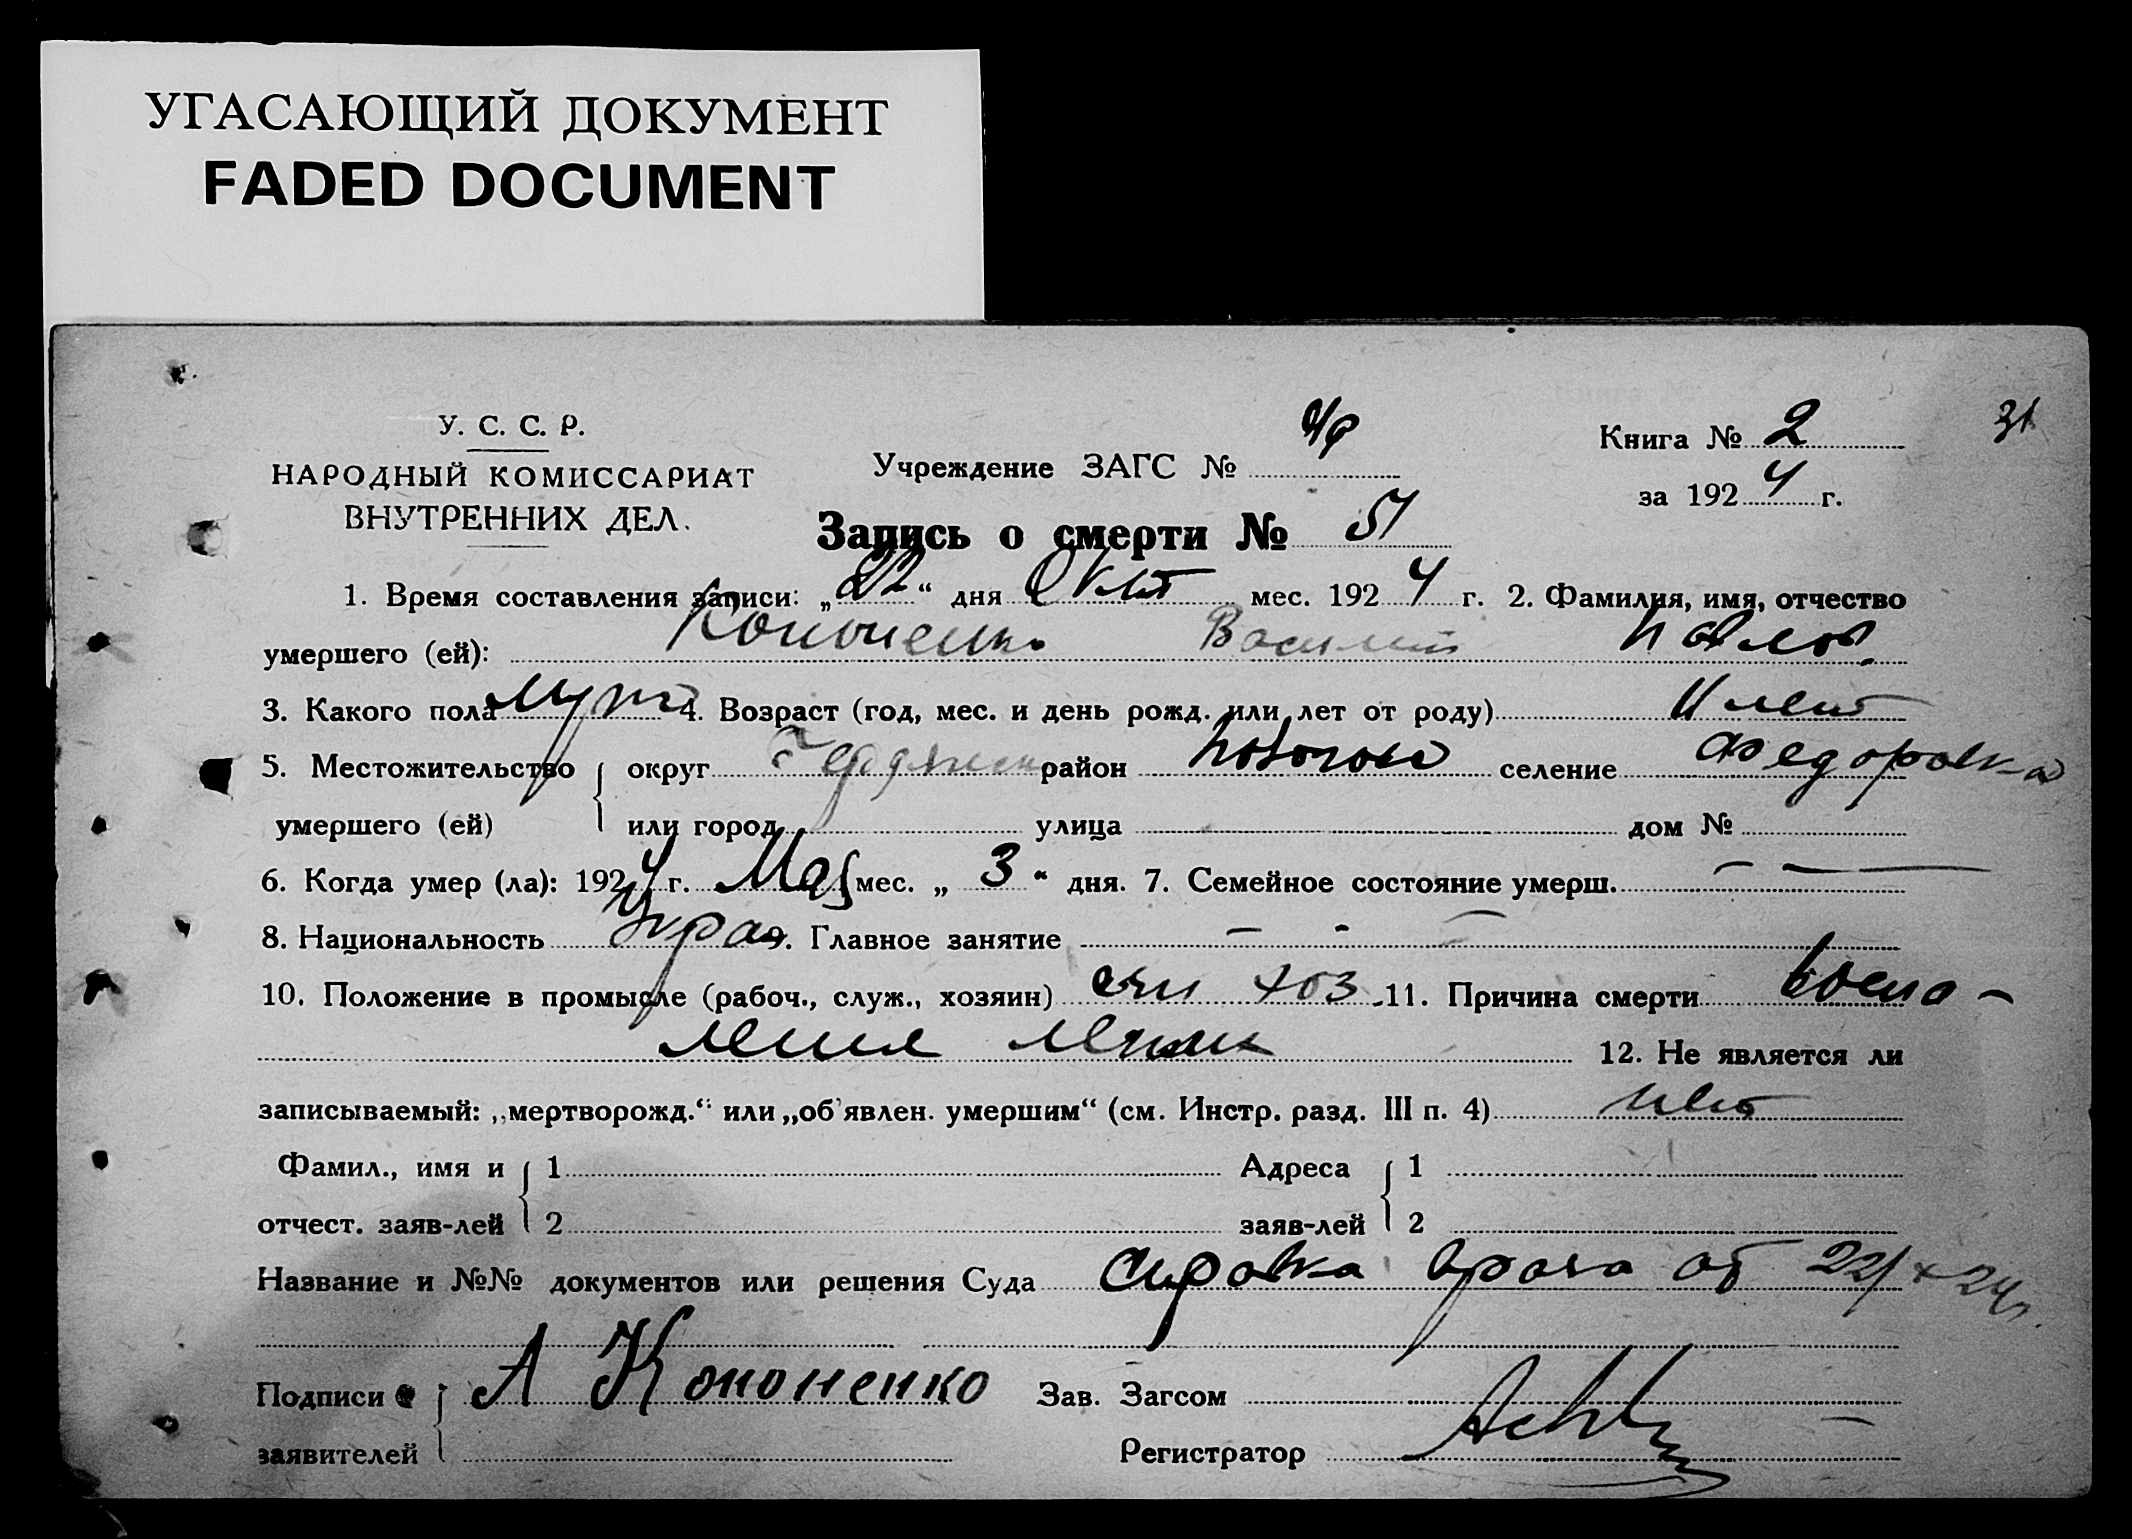 УГАСАЮЩИЙ ДОКУМЕНТ
FADED DOCUMENT
У. С. С. Р.
НАРОДНЫЙ КОМИССАРИАТ
ВНУТРЕННИХ ДЕЛ.
Учреждение ЗАГС №
Книга № 2
31
за 1924 г.
Запись о смерти № 51
1. Время составления записи: „22“ дня Окт мес. 1924 г. 2. Фамилия, имя, отчество
умершего (ей): Кононенко Василий Павлов.
3. Какого пола муж 4. Возраст (год, мес. и день рожд. или лет от роду) 11 лет
5. Местожительство округ район селение Федоровка
умершего (ей) или город улица дом №
6. Когда умер (ла): 1924 г. Мая мес. „ 3 “ дня. 7. Семейное состояние умерш. — —
8. Национальность Укра 9. Главное занятие — - —
10. Положение в промысле (рабоч., служ., хозяин) сын хоз. 11. Причина смерти воспа-
ление легких 12. Не является ли
записываемый: „мертворожд.“ или „об'явлен. умершим“ (см. Инстр. разд. III п. 4) нет
Фамил., имя и 1 Адреса 1
отчест. заяв-лей 2 заяв-лей 2
Название и №№ документов или решения Суда Справка врача от 22/X 24 г.
Подписи А Кононенко Зав. Загсом
заявителей Регистратор